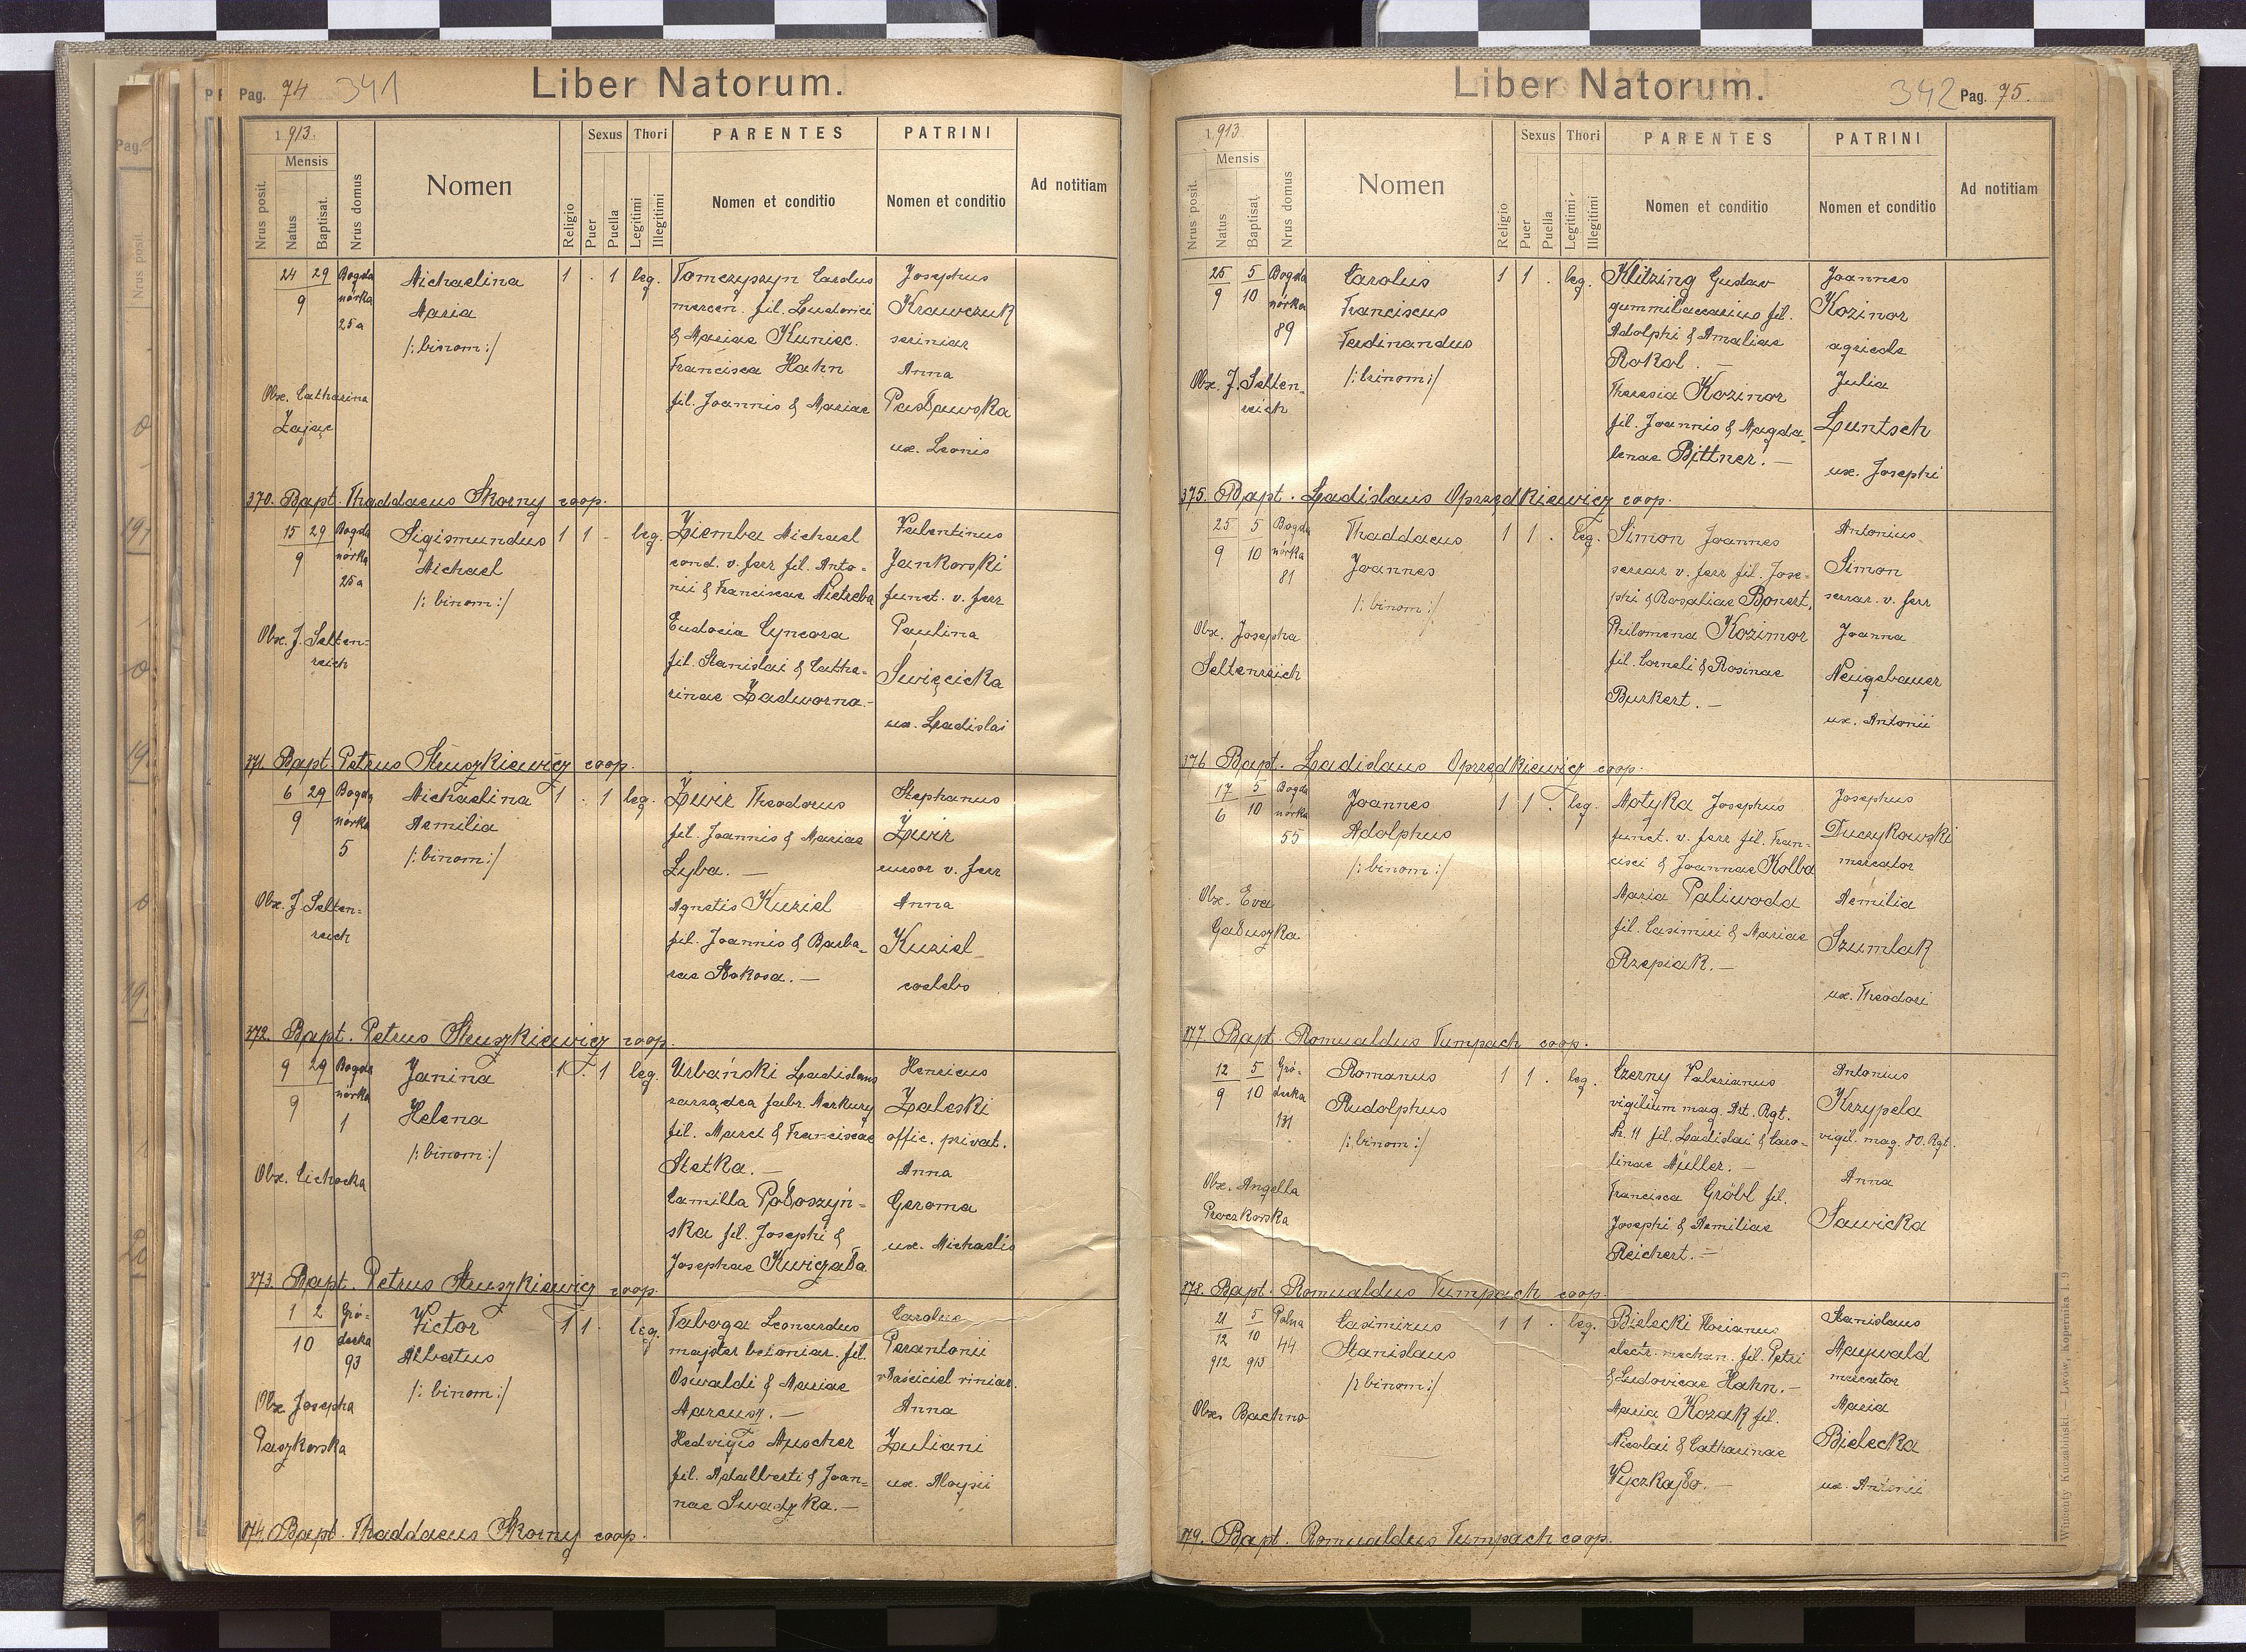 Pag. 74 341
Liber Natorum.
1.913.
Mensis
Nrus posit.
Natus
Baptisat.
Nrus domus
Nomen
Religio
Sexus
Puer
Puella
Thori
Legitimi
Illegitimi
PARENTES
Nomen et conditio
PATRINI
Nomen et conditio
Ad notitiam
24 29 Bogda
9 nórka
25a
Obx. Catharina
Zając
Michaelina
Maria
/: binom :/
1 . 1 leg.
Tomczyszyn Carolus
mercen. fil. Ludovici
& Mariae Kuniec.
Francisca Hahn
fil. Joannis & Mariae
Josephus
Krawczuk
scriniar
Anna
Pasławska
ux. Leonis
370. Bapt. Thaddaeus Skorny coop.
15 29 Bogda
9 nórka
25a
Obx. J. Selten=
reich
Sigismundus
Michael
/: binom :/
1 1 - leg.
Ziemba Michael
cond. v. ferr fil. Anto=
nii & Franciscae Nietreba
Eudocia Cyncora
fil. Stanislai & Catha=
rinae Zadworna.-
Valentinus
Jankorski
funct. v. ferr
Paulina
Święcicka
ux. Ladislai
371. Bapt. Petrus Stuszkiewicz coop.
6 29 Bogda
9 nórka
5
Obx. J. Selten=
reich
Michaelina
Aemilia
/: binom :/
1 . 1 leg.
Zwir Theodorus
fil. Joannis & Mariae
Lyba. -
Agnetis Kuziel
fil. Joannis & Barba=
rae Stokosa. -
Stephanus
Zwir
cursor v. ferr
Anna
Kuziel
coelebs
372. Bapt. Petrus Stuszkiewicz coop.
9 29 Bogda
9 nórka
1
Obx. Cichocka
Janina
Helena
/: binom :/
1 . 1 leg.
Urbański Ladislaus
zarządca fabr. Merkury
fil. Marci & Franciscae
Stetka. -
Camilla Połoszyń=
ska fil. Josephi &
Josephae Kwiczała
Henricus
Zaleski
offic. privat.
Anna
Geroma
ux. Michaelis
373. Bapt. Petrus Stuszkiewicz coop.
1 2 Gró=
10 decka
93
Obx Josepha
Paszkorska
Victor
Albertus
/: binom :/
1 1 . leg.
Taboga Leonardus
majster betoniar. fil.
Oswaldi & Mariae
Marcusz. -
Hedvigis Muscher
fil. Adalberti & Joan=
nae Swadzka. -
Carolus
Perantonii
właściciel winiar.
Anna
Zuliani
ux. Aloysii
374. Bapt. Thaddaeus Skorny coop.
Liber Natorum.
342 Pag. 75.
1.913.
Mensis
Nrus posit.
Natus
Baptisat.
Nrus domus
Nomen
Religio
Sexus
Puer
Puella
Thori
Legitimi
Illegitimi
PARENTES
Nomen et conditio
PATRINI
Nomen et conditio
Ad notitiam
25 5 Bogda
9 10 nórka
89
Obx. J. Selten=
reich
Carolus
Franciscus
Ferdinandus
/: trinom :/
1 1 . leg.
Klitzing Gustav
gummilaccarius fil.
Adolphi & Amaliae
Rokol. -
Theresia Kozinor
fil. Joannis & Magda=
lenae Bittner. -
Joannes
Kozinor
agricola
Julia
Luntsch
ux. Josephi
375. Bapt. Ladislaus Oprzędkiewicz coop.
25 5 Bogda
9 10 nórka
81
Obx. Josepha
Seltenreich
Thaddaeus
Joannes
/: binom :/
1 1 . leg.
Simon Joannes
serrar v. ferr fil. Jose=
phi & Rosaliae Bonert,
Philomena Kozimor
fil. Corneli & Rosinae
Burkert. -
Antonius
Simon
serrar. v. ferr
Joanna
Neugebauer
ux. Antonii
376 Bapt. Ladislaus Oprzędkiewicz coop.
17 5 Bogda
6 10 nórka
55
Obx. Eva
Gałuszka
Joannes
Adolphus
/: binom :/
1 1 . leg.
Motyka Josephus
funct. v. ferr fil. Fran=
cisci & Joannae Kolba
Maria Paliwoda
fil. Casimiri & Mariae
Rzepiak. -
Josephus
Tuczykowski
mercator
Aemilia
Szumlak
ux. Theodori
377. Bapt. Romualdus Tumpach coop.
12 5 Gró=
9 10 decka
131
Obx. Angella
Proczkorska
Romanus
Rudolphus
/: binom :/
1 1 . leg.
Czerny Valerianus
vigilium mag. Art. Rgt.
Nr. 11 fil. Ladislai & Caro=
linae Müller. -
Francisca Gröbl fil.
Josephi & Aemiliae
Reichert. -
Antonius
Krzypela
vigil. mag. 80. Rgt.
Anna
Sawicka
378. Bapt. Romualdus Tumpach coop.
21 5 Polna
12 10 44
912 913
Obx. Bachno
Casimirus
Stanislaus
/: binom :/
1 1 . leg.
Bielecki Florianus
electr. mechan. fil. Petri
& Ludovicae Hahn. -
Maria Kozak fil.
Nicolai & Catharinae
Wyczkajło. -
Stanislaus
Maywald
mercator
Maria
Bielecka
ux. Antonii
379. Bapt. Romualdus Tumpach coop.
Wincenty Kuczabiński. Lwów, Kopernika 1. 9